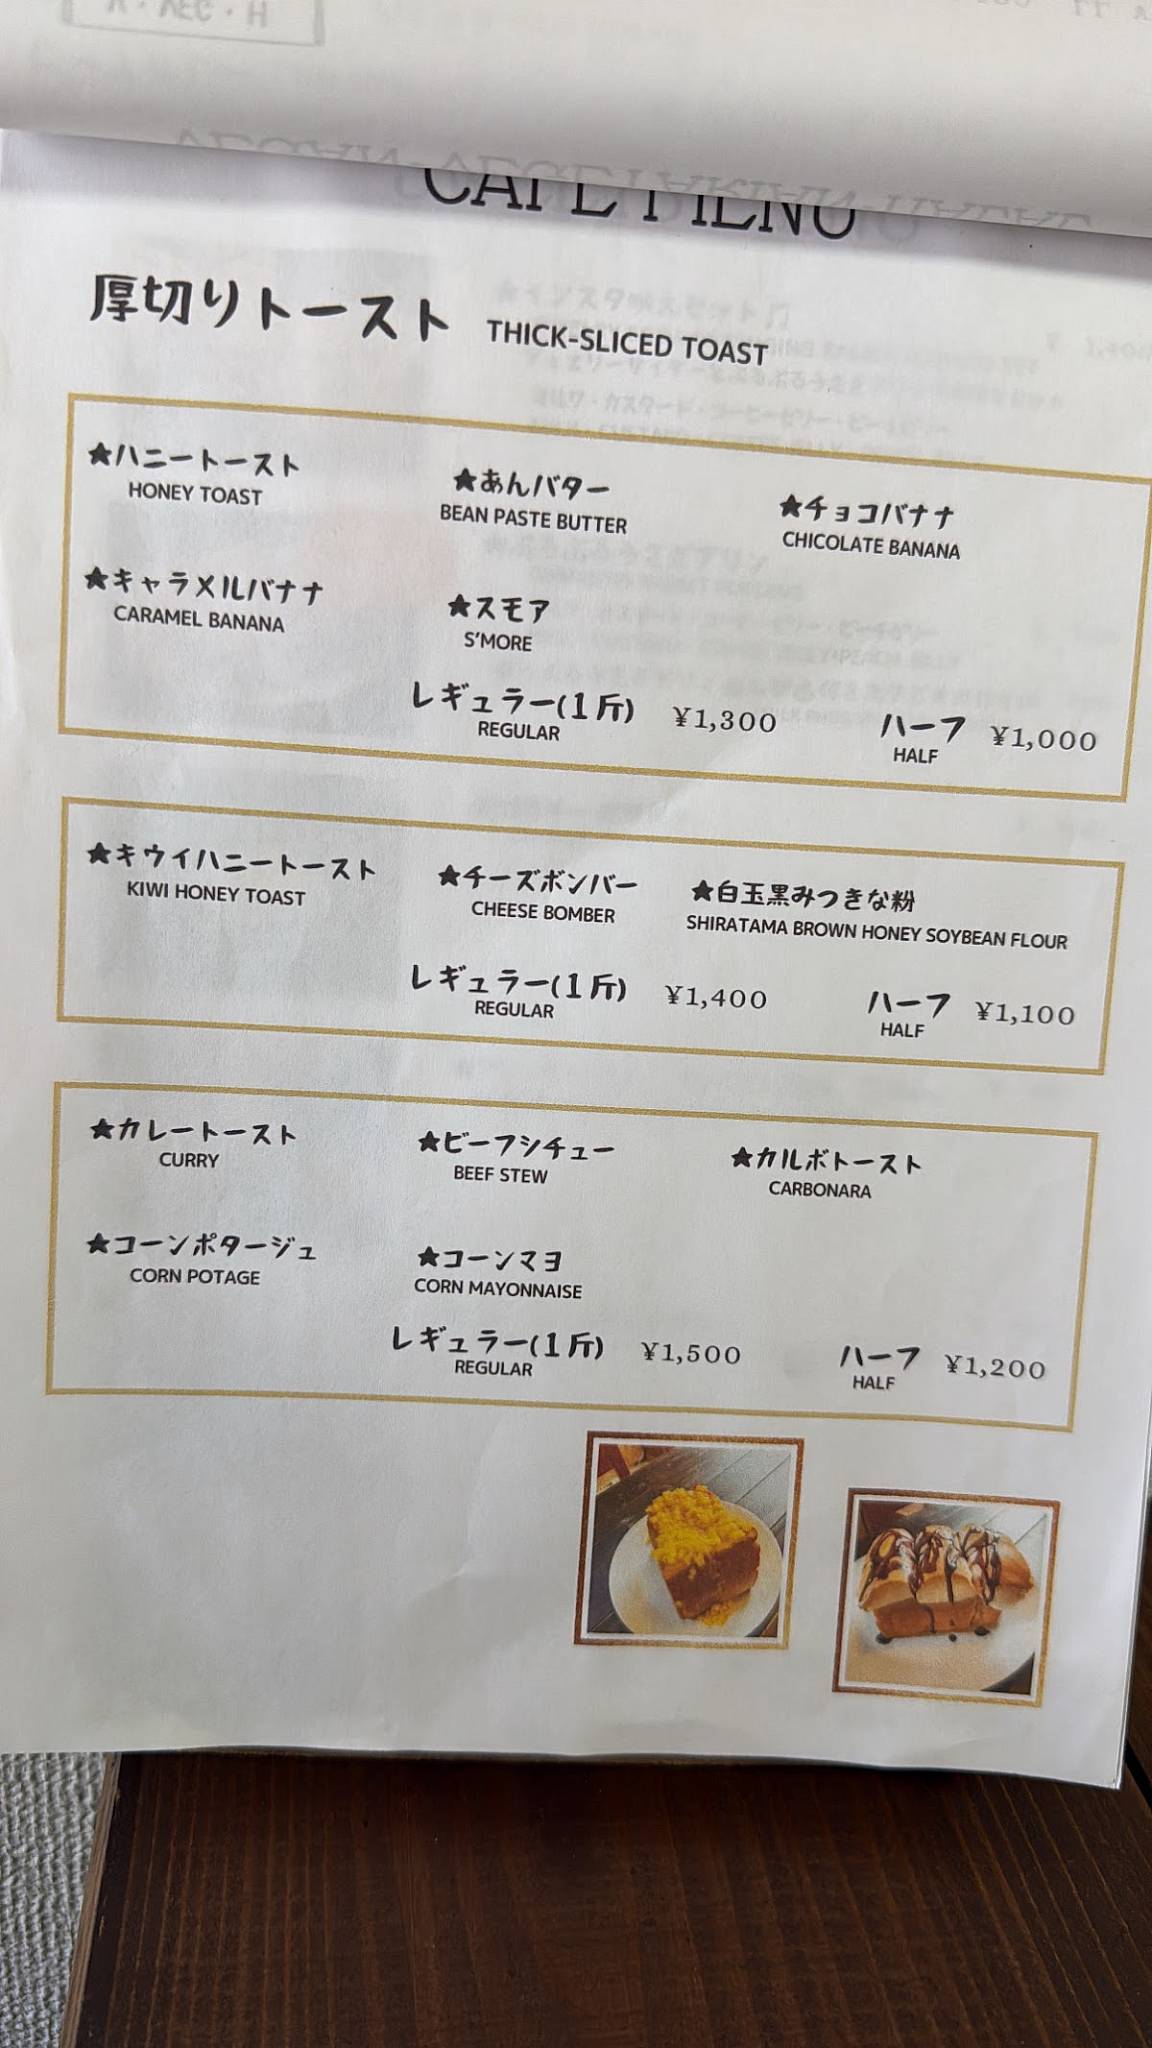 CAFE MENU
厚切りトースト THICK-SLICED TOAST
★ハニートースト
HONEY TOAST
★あんバター
BEAN PASTE BUTTER
★チョコバナナ
CHICOLATE BANANA
★キャラメルバナナ
CARAMEL BANANA
★スモア
S'MORE
レギュラー(1斤) ¥1,300 ハーフ ¥1,000
REGULAR HALF
★キウイハニートースト
KIWI HONEY TOAST
★チーズボンバー
CHEESE BOMBER
★白玉黒みつきな粉
SHIRATAMA BROWN HONEY SOYBEAN FLOUR
レギュラー(1斤) ¥1,400 ハーフ ¥1,100
REGULAR HALF
★カレートースト
CURRY
★ビーフシチュー
BEEF STEW
★カルボトースト
CARBONARA
★コーンポタージュ
CORN POTAGE
★コーンマヨ
CORN MAYONNAISE
レギュラー(1斤) ¥1,500 ハーフ ¥1,200
REGULAR HALF